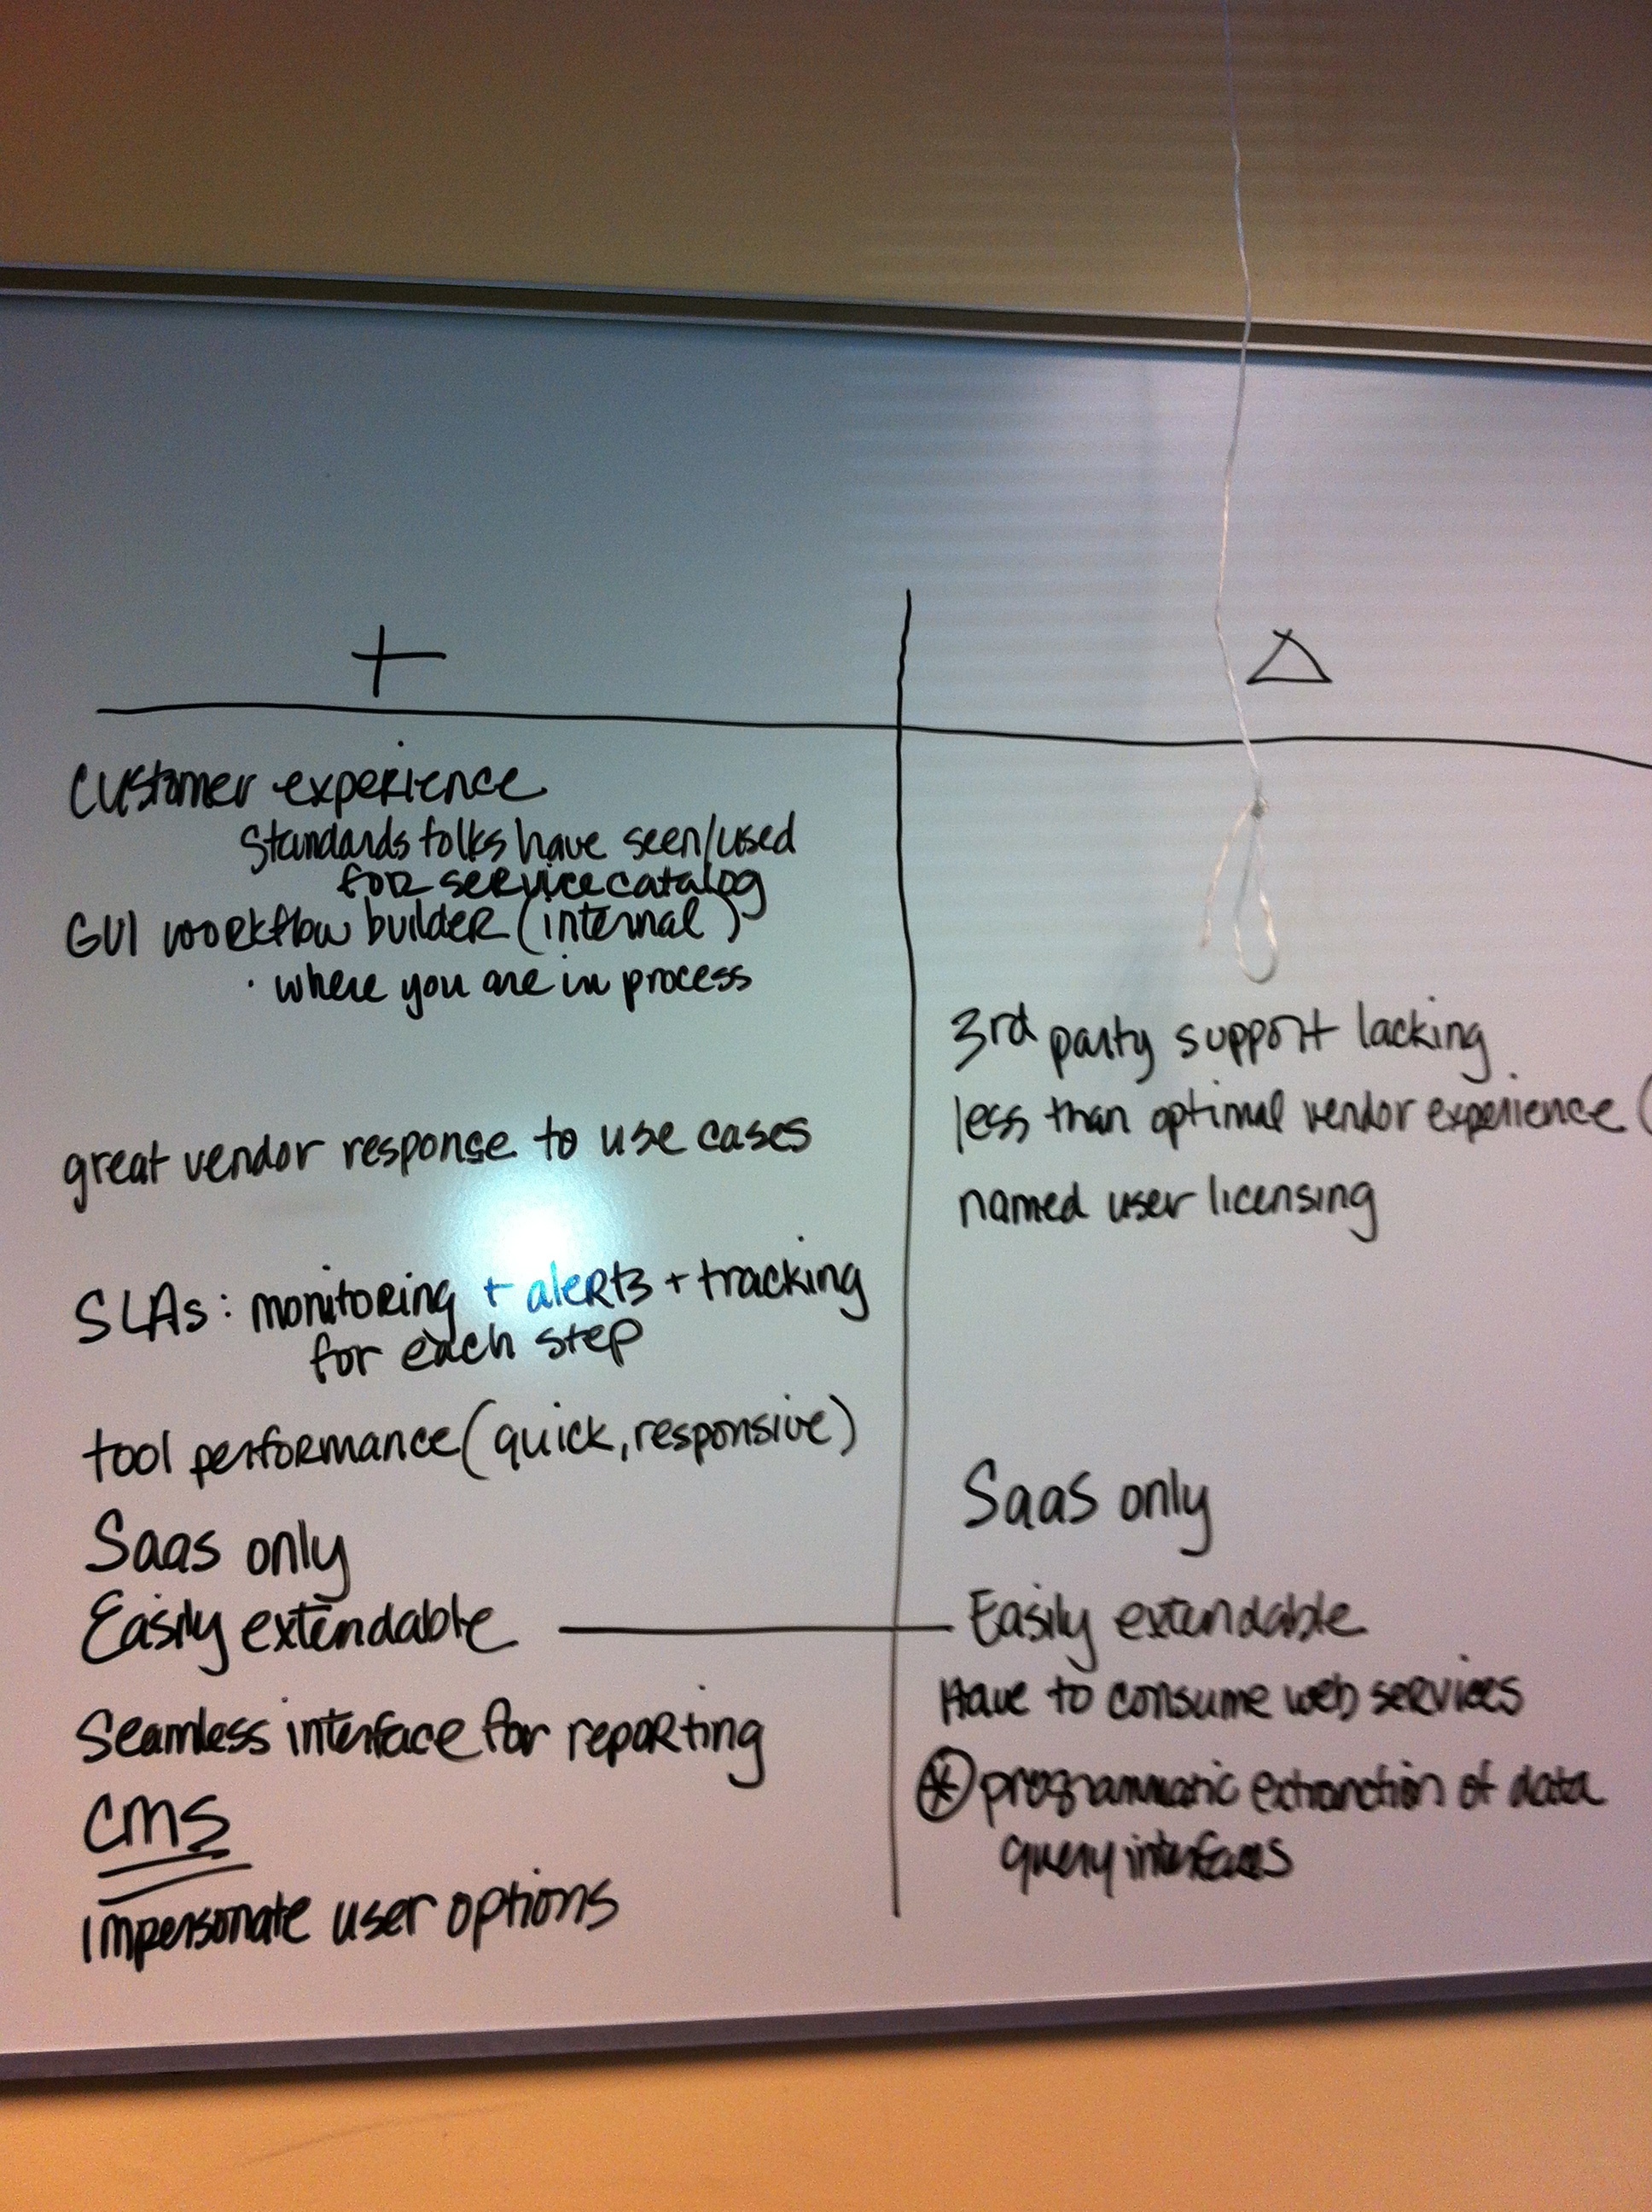 +
Customer experience
Standards folks have seen/used
for service catalog
GUI workflow builder (internal)
· where you are in process
great vendor response to use cases
SLAs: monitoring + alerts + tracking
for each step
tool performance (quick, responsive)
Saas only
Easily extendable
Seamless interface for reporting
CMS
impersonate user options
Δ
3rd party support lacking
less than optimal vendor experience (
named user licensing
SaaS only
Easily extendable
Have to consume web services
* programmatic extraction of data
query interfaces